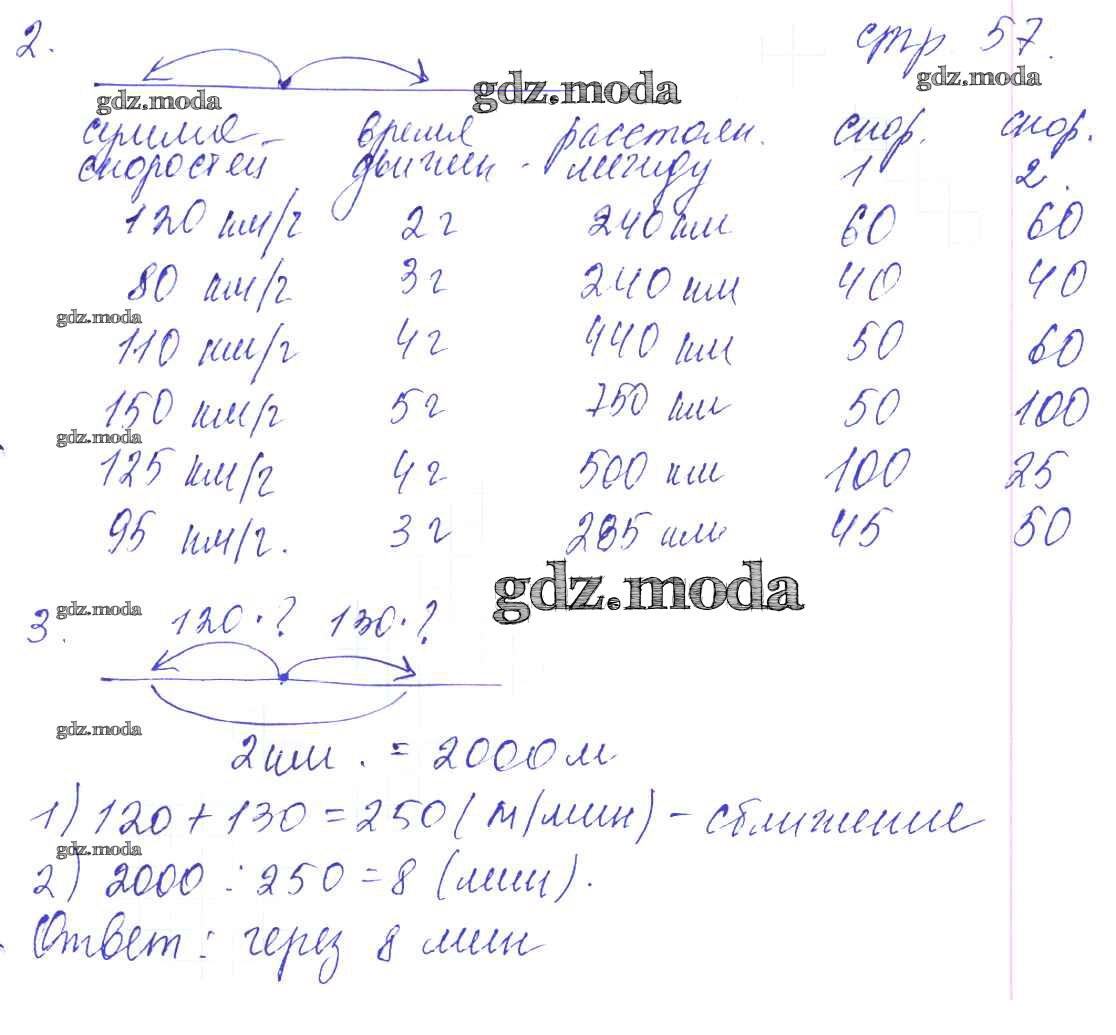 2.
стр. 57.
gdz.moda gdz.moda gdz.moda
сумма время расстоян. скор. скор.
скоростей движен - между 1 2.
120 км/ч 2ч 240 км 60 60
80 км/ч 3ч 240 км 40 40
gdz.moda
110 км/ч 4ч 440 км 50 60
150 км/ч 5ч 750 км 50 100
gdz.moda
125 км/ч 4ч 500 км 100 25
95 км/ч. 3ч 285 км 45 50
gdz.moda
gdz.moda
3. 120·? 130·?
gdz.moda
2 км. = 2000 м
1) 120 + 130 = 250 (м/мин) – сближение
gdz.moda
2) 2000 : 250 = 8 (мин).
Ответ: через 8 мин